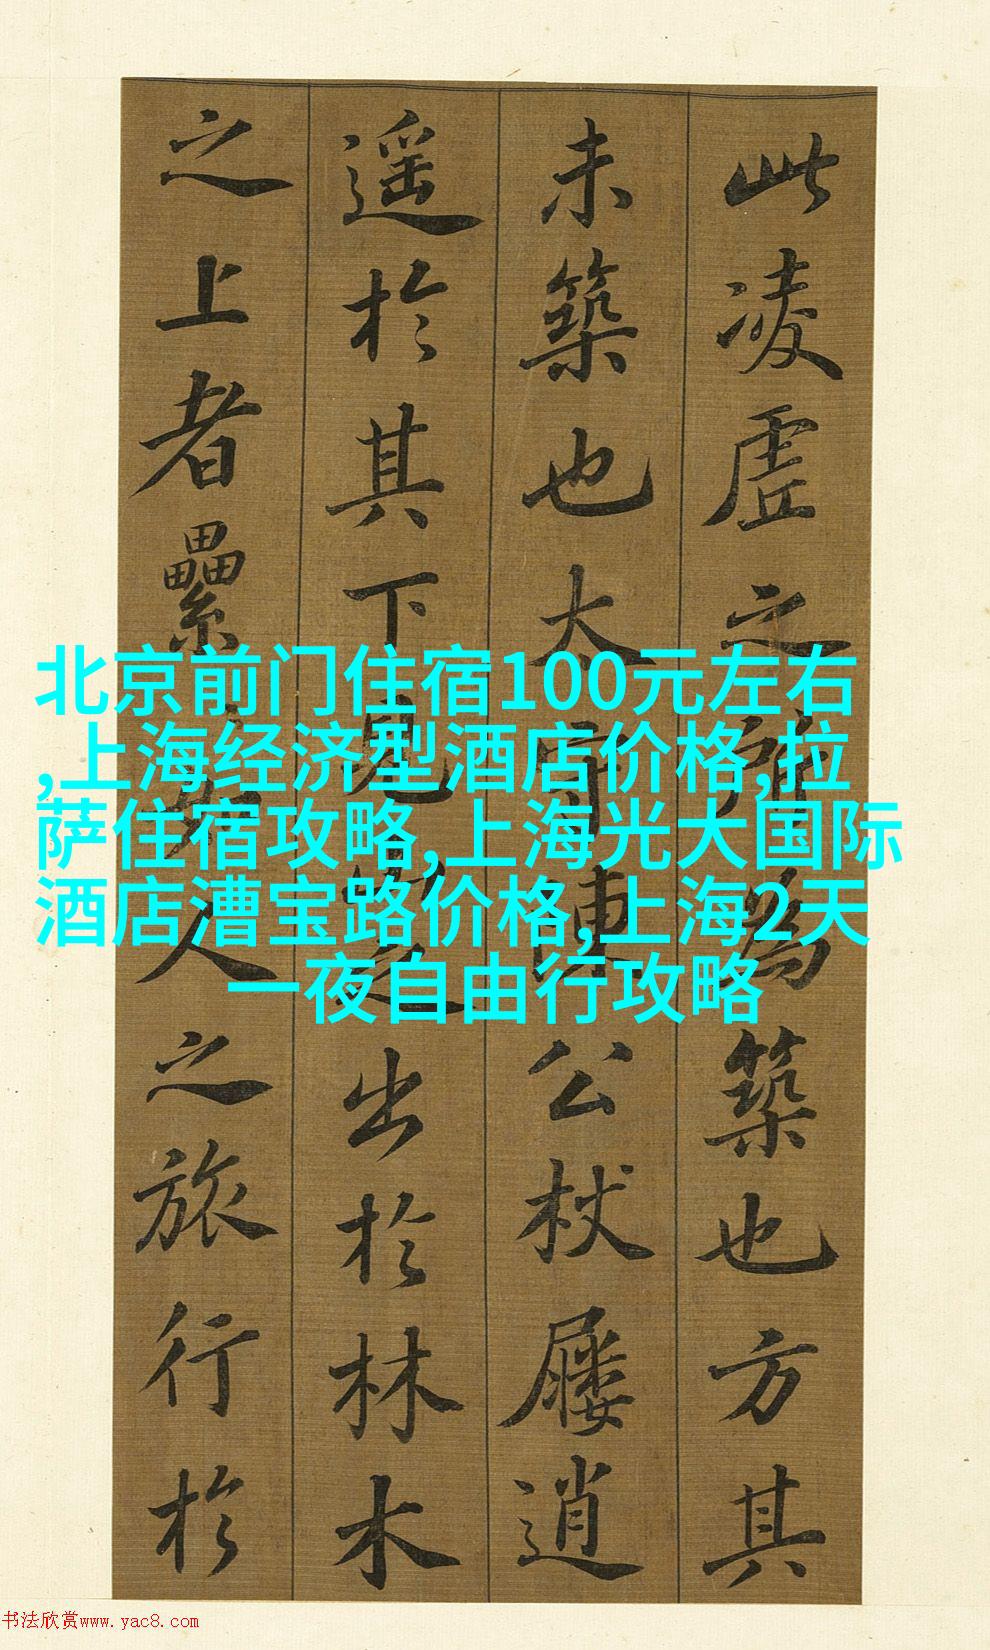 此凌虗之所為築也方其
未築也太守陳公杖屨逍
遥於其下見山之出於林木
之上者纍纍如人之旅行於
北京前门住宿100元左右
,上海经济型酒店价格,拉
萨住宿攻略,上海光大国际
酒店漕宝路价格,上海2天
一夜自由行攻略
书法欣赏www.yac8.com